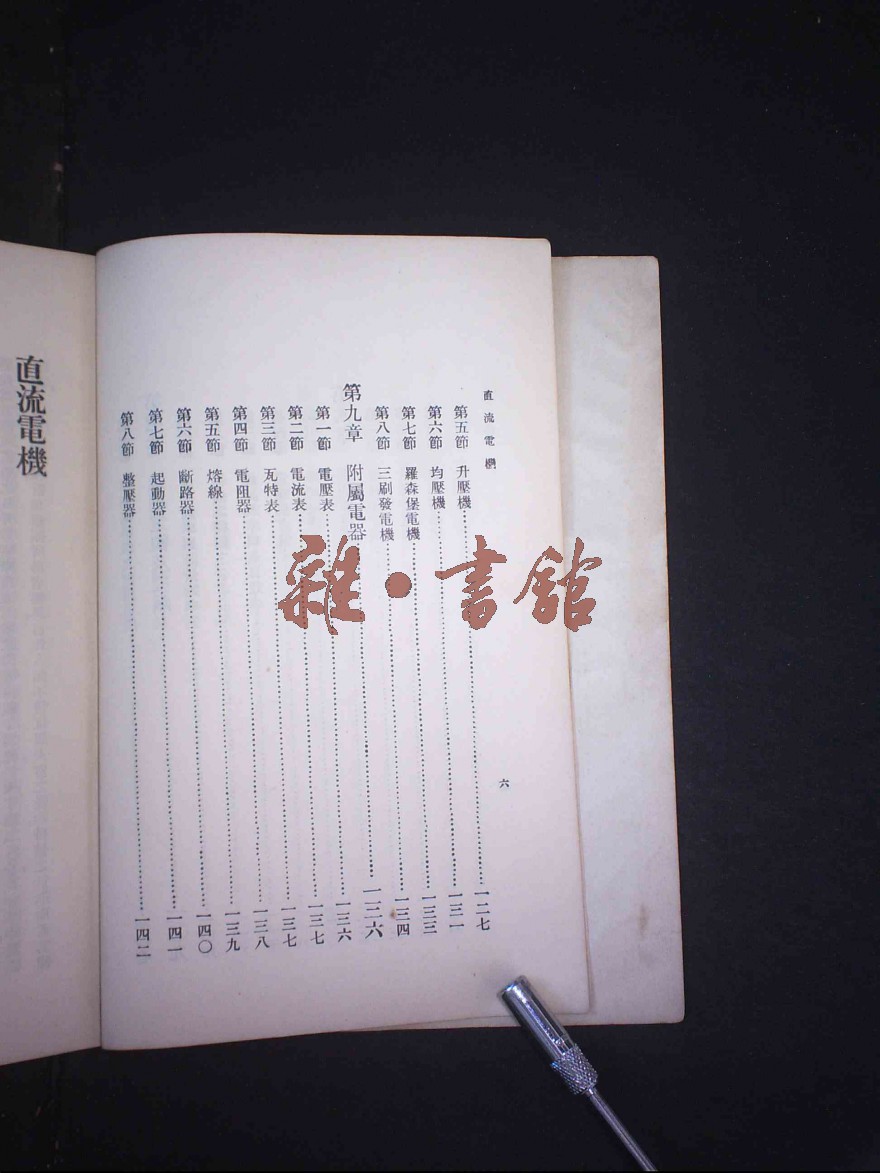 直流電機
六
第五節　升壓機……一二七
第六節　均壓機……一三一
第七節　羅森堡電機……一三三
第八節　三刷發電機……一三四
第九章　附屬電器……一三六
第一節　電壓表……一三六
第二節　電流表……一三七
第三節　瓦特表……一三七
第四節　電阻器……一三八
第五節　熔線……一三九
第六節　斷路器……一四〇
第七節　起動器……一四一
第八節　整壓器……一四二
直流電機
雜·書館